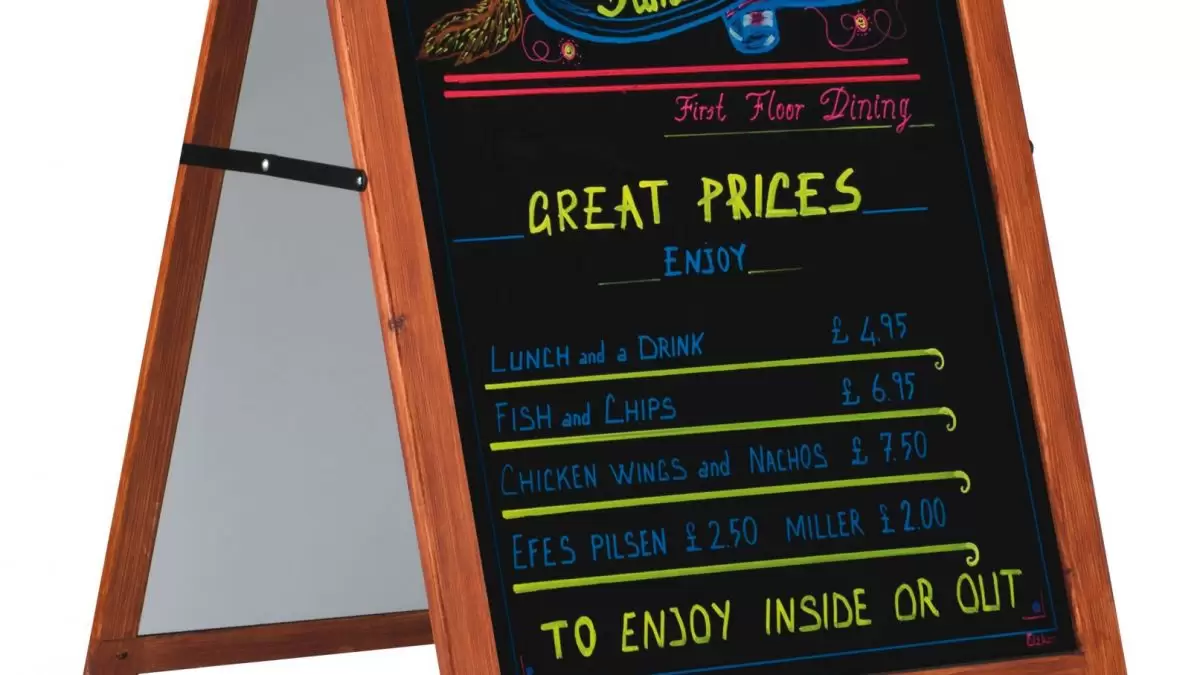 First Floor Dining
GREAT PRICES
ENJOY
LUNCH and a DRINK £ 4.95
FISH and CHIPS £ 6.95
CHICKEN WINGS and NACHOS £ 7.50
EFES PILSEN £ 2.50 MILLER £ 2.00
TO ENJOY INSIDE OR OUT